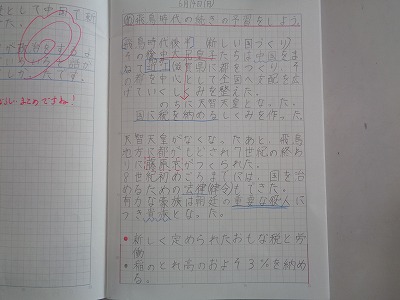 ふしいまとめですね!
6月14日(月)
飛鳥時代の続きの予習をしよう。
飛鳥時代後半(新しい国づくり)
その後中大兄皇子たちは中国をま
(滋賀県)に都をつくり、こ
の都を中心として全国へ支配を広
げていくしくみを整えた。
のちに天智天皇となった。
国に税を納めるしくみを作った。
天智天皇がなくなったあと、飛鳥
地方に都がもどされ7世紀の終わ
りに藤原京がつくられた。
8世紀初めごろまでには、国を治
めるための法律(律令)もできた。
有力な豪族は朝廷の重要な役人に
つき貴族となった。
・新しく定められたおもな税と労
働
・稲のとれ高のおよそ3%を納め
る。